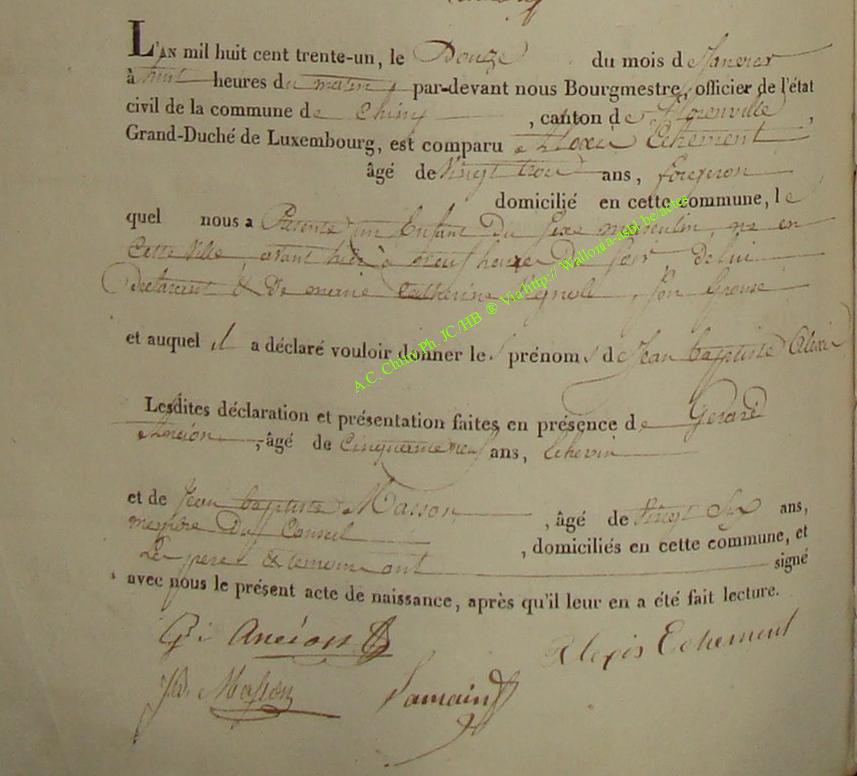 L'AN mil huit cent trente-un, le Douze du mois de Janvier
à huit heures du matin, par-devant nous Bourgmestre, officier de l'état
civil de la commune de Chiny, canton de Florenville,
Grand-Duché de Luxembourg, est comparu Alexis Echement
âgé de Vingt trois ans, forgeron
domicilié en cette commune, le
quel nous a Présenté un Enfant Du Sexe masculin, né en
Cette Ville, avant hier à neuf heures Du Soir De lui
Déclarant & De marie Catherine Son Epouse
et auquel il a déclaré vouloir donner les prénoms de Jean baptiste Alexis
Lesdites déclaration et présentation faites en présence de Gerard
Ancion, âgé de Cinquante neuf ans, Echevin
et de Jean baptiste Masson, âgé de Vingt Six ans,
membre Du Conseil, domiciliés en cette commune, et
Les peres & temoins ont signé
avec nous le présent acte de naissance, après qu'il leur en a été fait lecture.
G: Ancion
Alexis Echement
JB. Masson
Lamain
A.C. Chiny Ph. JC/HB ® Via http:// Wallonia-asbl.be/actes